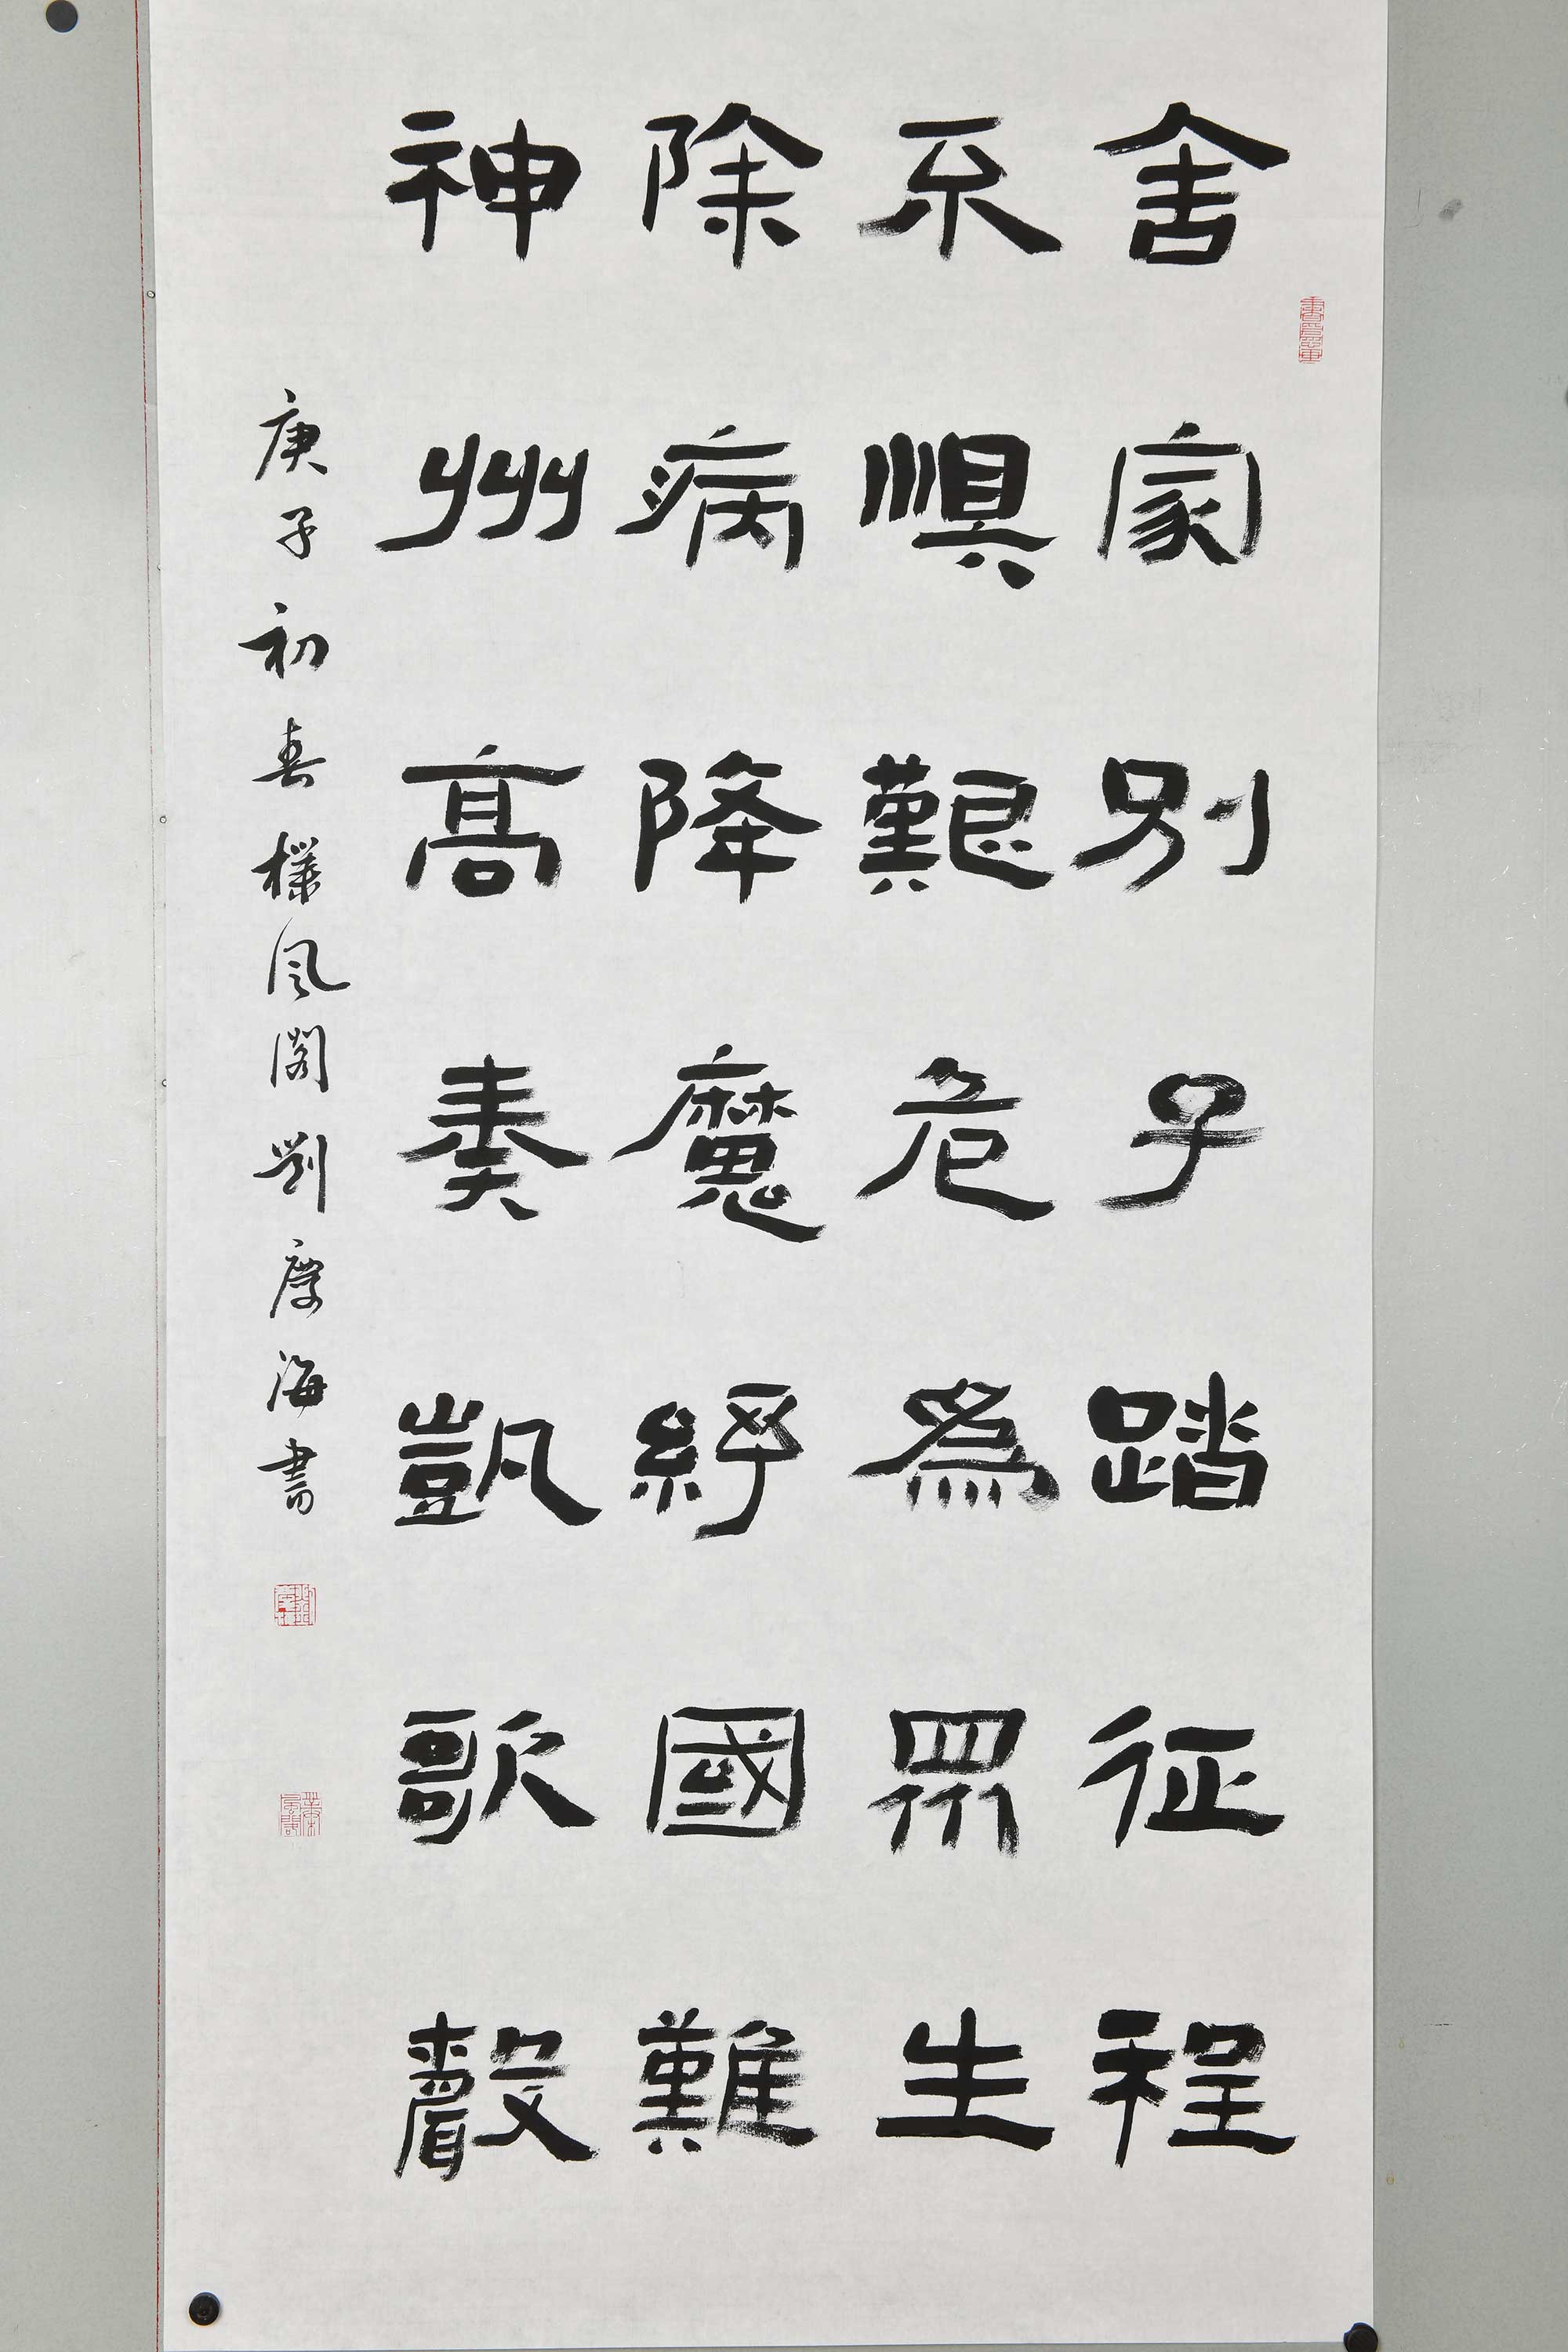 舍家別子踏征程
不懼艱危為眾生
除病降魔紓國難
神州高奏凱歌聲
庚子初春 樸風閣劉慶海書